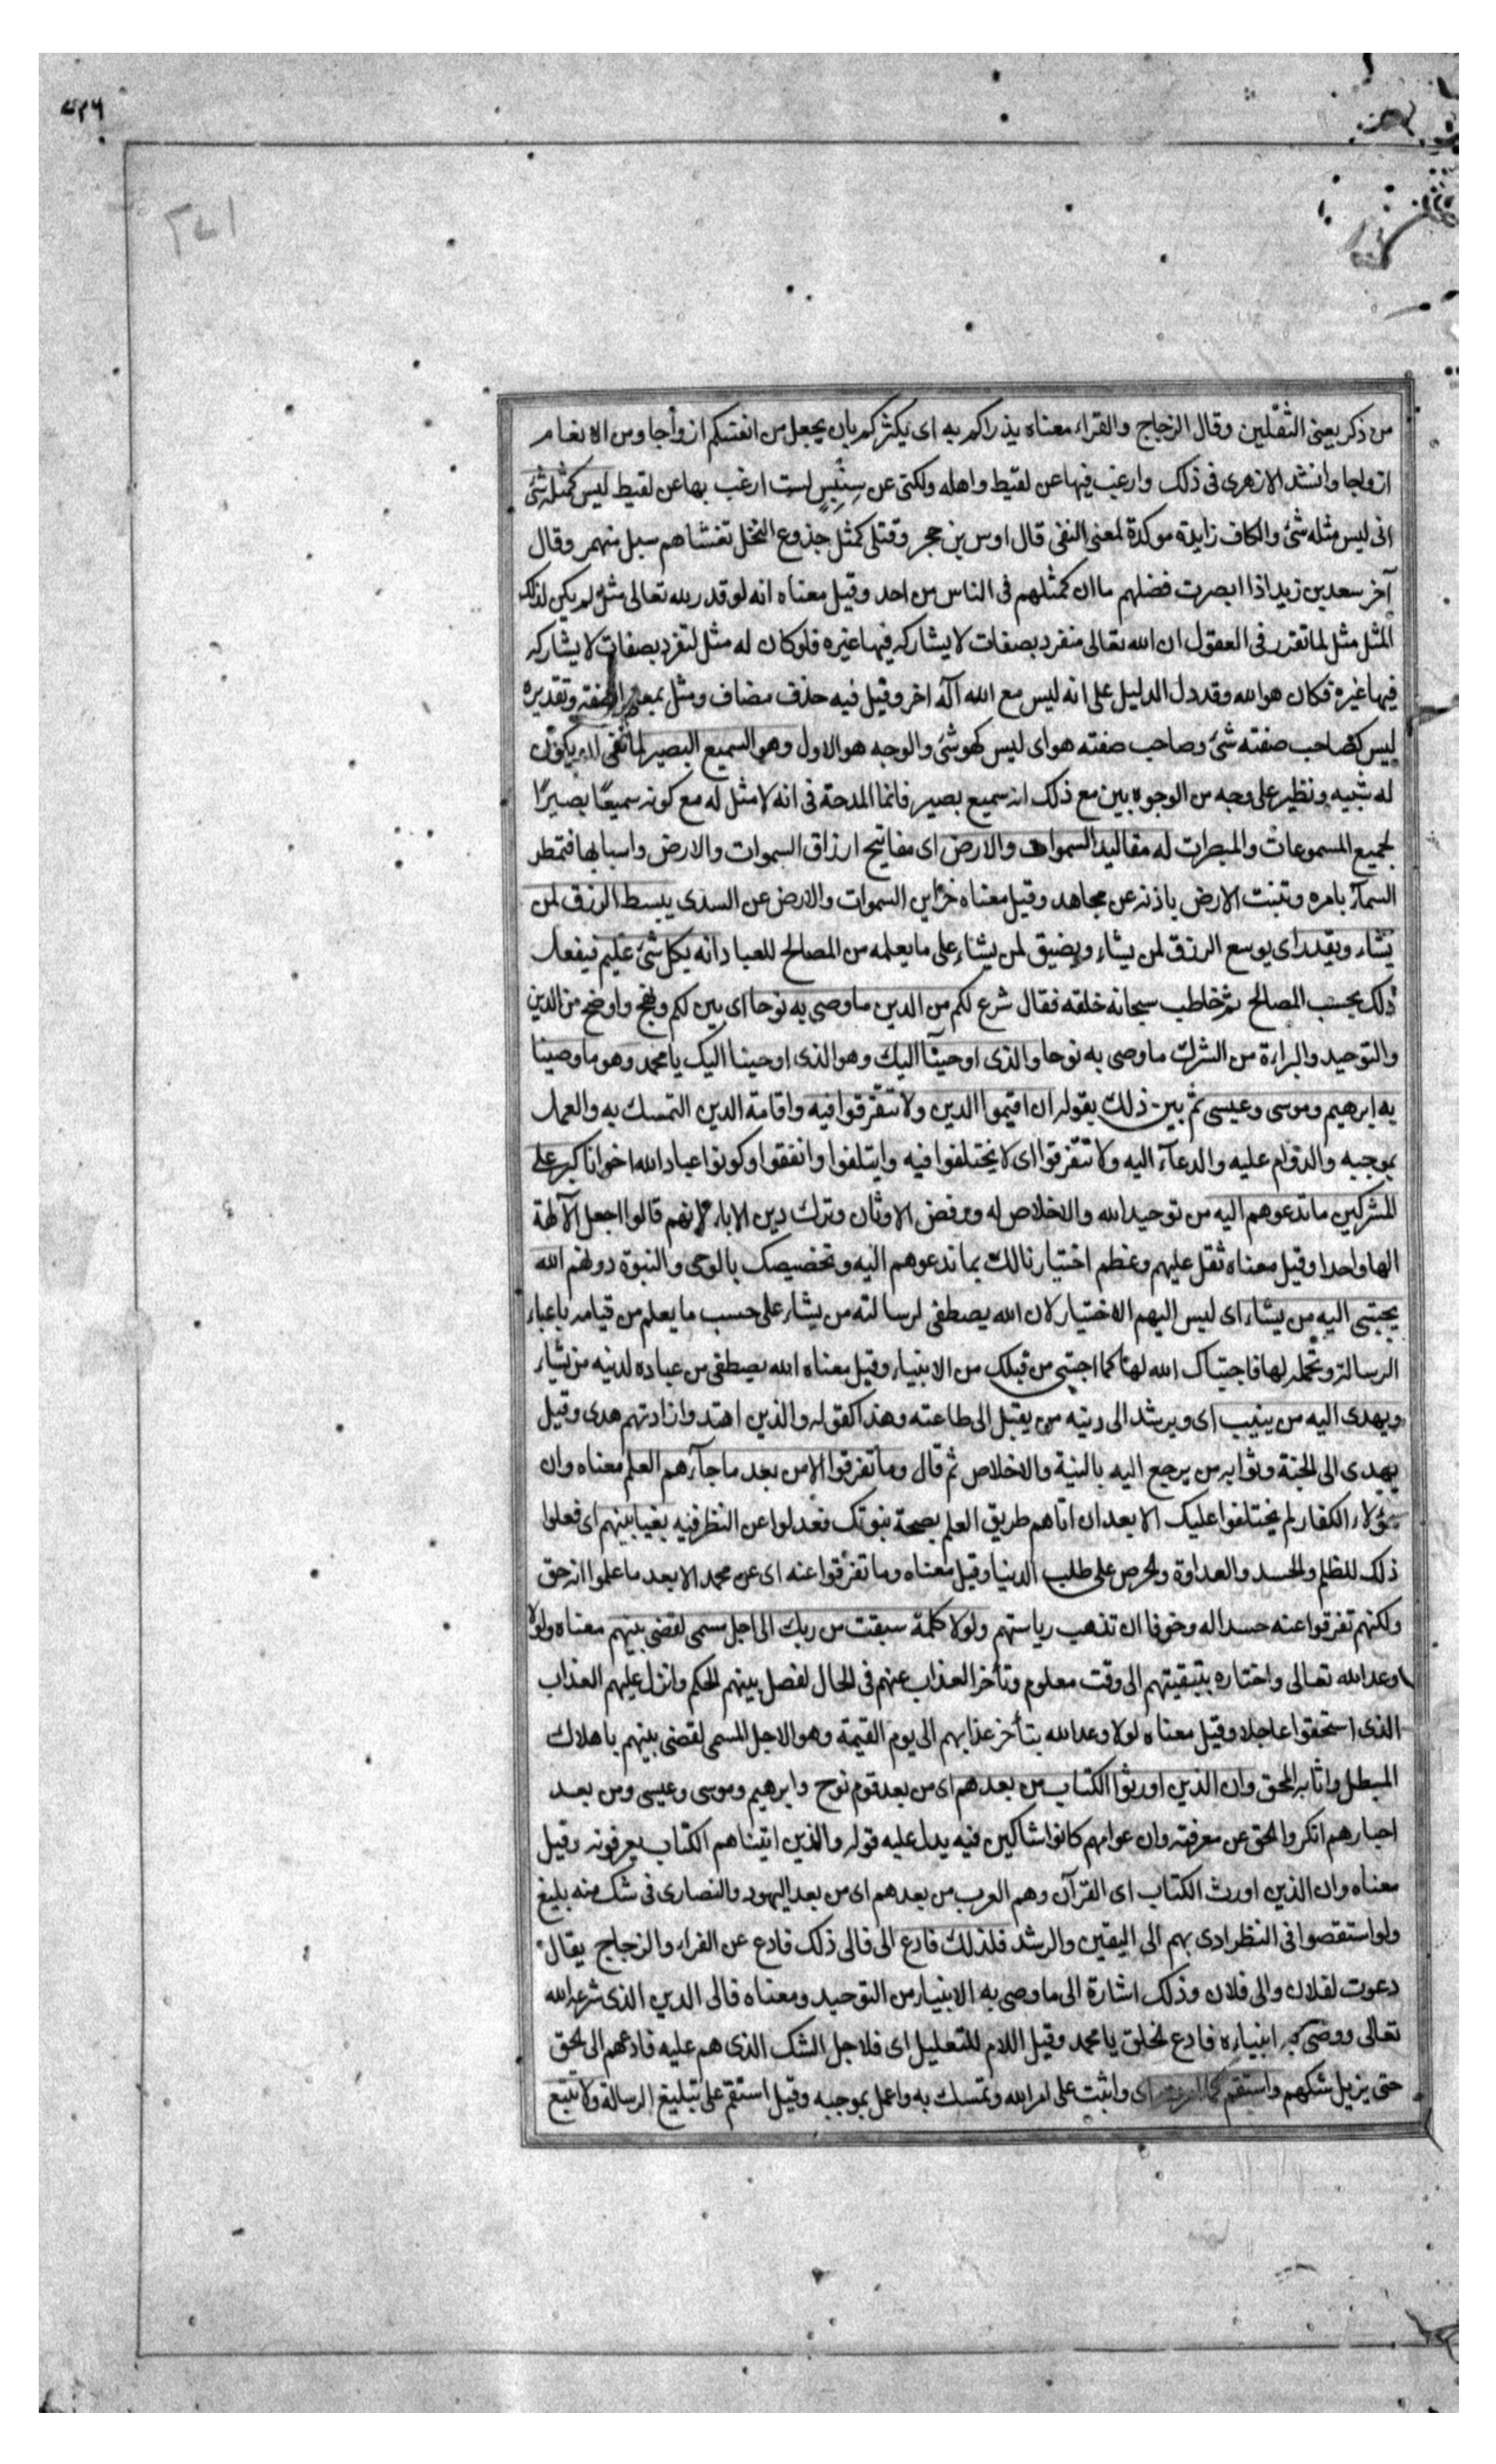 من ذكر يعنى الثقلين وقال الزجاج والفراء معناه يذراكم به اى يكثركم بان يجعل من انفسكم ازواجا ومن الانعام
ازواجا وانشد الازهرى فى ذلك وارغب فيها عن لقيط واهله ولكنى عن سِنْبِسٍ لست ارغب بها عن لقيط ليس كمثله شئ
اى ليس مثله شئ والكاف زايدة موكدة لمعنى النفى قال اوس بن حجر وقتلى كمثل جذوع النخل تغشاهم سبل منهمر وقال
آخر سعد بن زيد اذا ابصرت فضلهم ما ان كمثلهم فى الناس من احد وقيل معناه انه لو قدر لله تعالى مثل لم يكن لذلك
المثل مثل لما تقرر فى العقول ان الله تعالى منفرد بصفات لا يشاركه فيها غيره فلو كان له مثل لتفرد بصفات لا يشاركه
فيها غيره فكان هو الله وقد دل الدليل على انه ليس مع الله آله اخر وقيل فيه حذف مضاف ومثل بمعنى الصفة وتقديره
ليس كصاحب صفته شئ وصاحب صفته هو اى ليس كهو شئ والوجه هو الاول وهو السميع البصير لما نفى ان يكون
له شبيه ونظير على وجه من الوجوه بين مع ذلك انه سميع بصير فانما المدحة فى انه لا مثل له مع كونه سميعًا بصيرًا
لجميع المسموعات والمبصرات له مقاليد السموات والارض اى مفاتيح ارزاق السموات والارض واسبابها فتمطر
السمآء بامره وتنبت الارض باذنه عن مجاهد وقيل معناه خزاين السموات والارض عن السدى يبسط الرزق لمن
يشاء ويقدر اى يوسع الرزق لمن يشاء ويضيق لمن يشاء على ما يعلمه من المصالح للعباد انه بكل شئ عليم فيفعل
ذلك بحسب المصالح ثم خاطب سبحانه خلقه فقال شرع لكم من الدين ما وصى به نوحا اى بين لكم ونهج واوضح من الدين
والتوحيد والبراءة من الشرك ما وصى به نوحا والذى اوحينآ اليك وهو الذى اوحينا اليك يا محمد وهو ما وصينا
به ابرهيم وموسى وعيسى ثم بين ذلك بقوله ان اقيموا الدين ولا تتفرقوا فيه واقامة الدين التمسك به والعمل
بموجبه والدوام عليه والدعآء اليه ولا تتفرقوا اى لا يختلفوا فيه وايتلفوا واتفقوا وكونوا عباد الله اخوانا كبر على
المشركين ما تدعوهم اليه من توحيد الله والاخلاص له ورفض الاوثان وترك دين الاباء لانهم قالوا اجعل الآلهة
الها واحدا وقيل معناه ثقل عليهم وعظم اختيارنا لك بما تدعوهم اليه وتخصيصك بالوحى والنبوة دونهم الله
يجتبى اليه من يشاء اى ليس اليهم الاختيار لان الله يصطفى لرسالته من يشاء على حسب ما يعلم من قيامه باعباء
الرسالة وتحمله لها فاجتباك الله لها كما اجتبى من قبلك من الانبياء وقيل معناه الله يصطفى من عباده لدينه من يشاء
ويهدى اليه من ينيب اى ويرشد الى دينه من يقبل الى طاعته وهذا كقوله والذين اهتدوا زادتهم هدى وقيل
يهدى الى الجنة وثوابه من يرجع اليه بالنية والاخلاص ثم قال وما تفرقوا الا من بعد ما جآءهم العلم معناه وان
هؤلاء الكفار لم يختلفوا عليك الا بعد ان اتاهم طريق العلم بصحة نبوتك فعدلوا عن النظر فيه بغيا بينهم اى فعلوا
ذلك للظلم والحسد والعداوة والحرص على طلب الدنيا وقيل معناه وما تفرقوا عنه اى عن محمد الا بعد ما علموا انه حق
ولكنهم تفرقوا عنه حسدا له وخوفا ان تذهب رياستهم ولولا كلمة سبقت من ربك الى اجل مسمى لقضى بينهم معناه ولولا
وعد الله تعالى واختاره بتبقيتهم الى وقت معلوم وتأخر العذاب عنهم فى الحال لفصل بينهم الحكم وانزل عليهم العذاب
الذى استحقوا عاجلا وقيل معناه لولا وعد الله بتأخر عذابهم الى يوم القيمة وهو الاجل المسمى لقضى بينهم باهلاك
المبطل واثابة المحق وان الذين اورثوا الكتاب من بعدهم اى من بعد قوم نوح وابرهيم وموسى وعيسى ومن بعد
احبارهم انكروا الحق عن معرفته وان عوامهم كانوا شاكين فيه يدل عليه قوله والذين اتيناهم الكتاب يعرفونه وقيل
معناه وان الذين اورث الكتاب اى القرآن وهم العرب من بعدهم اى من بعد اليهود والنصارى فى شك منه بليغ
ولو استقصوا فى النظر ادى بهم الى اليقين والرشد فلذلك فادع الى فالى ذلك فادع عن الفراء والزجاج يقال
دعوت لفلان والى فلان وذلك اشارة الى ما وصى به الانبياء من التوحيد ومعناه فالى الدين الذى شرعه الله
تعالى ووصى به انبياءه فادع الخلق يا محمد وقيل اللام للتعليل اى فلاجل الشك الذى هم عليه فادعهم الى الحق
حتى يزيل شكهم واستقم كما امرت اى واثبت على امر الله وتمسك به واعمل بموجبه وقيل استقم على تبليغ الرسالة ولا تتبع